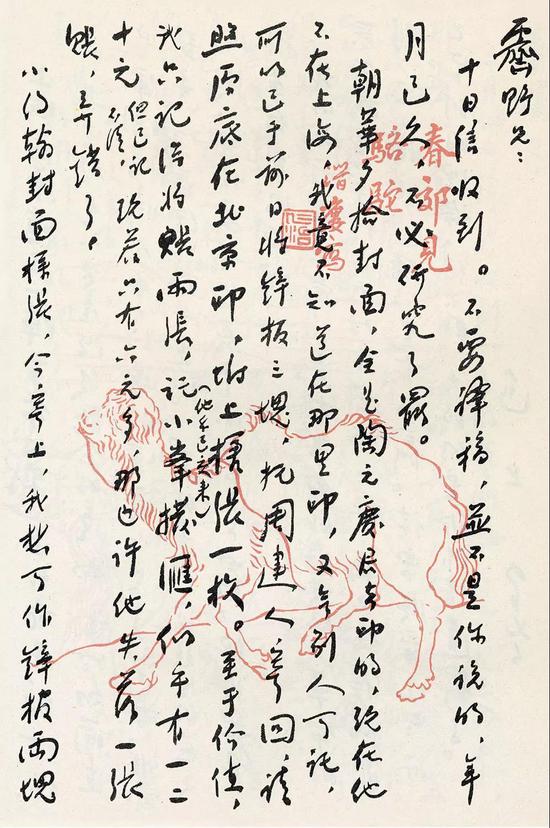 霽野兄：
十日信收到。不要譯稿，並不是你說的，年
月已久，不必研究了罷。
朝華夕拾封面，全是陶元慶君去印的，現在他
不在上海，我竟不知道在那里印，又無別人可託，
所以已于前日將鋅板三塊，托周建人寄回，請
照原底在北京印，附上樣張一枚。至于價值，
我只記得將賬兩張，託小峯撥匯，（他云已交来）似乎有一二
十元但已記不清，現若只有六元多，那也許他失落一張
賬，弄錯了。
小約翰封面樣張，今寄上，我想可作鋅板兩塊
春郊見
駱駝